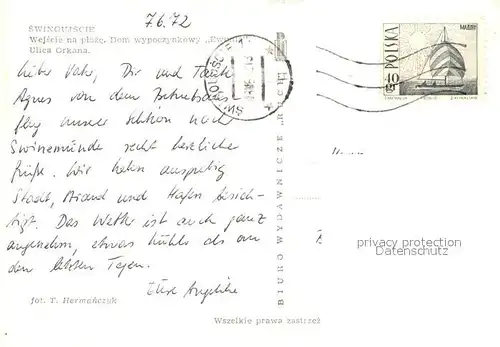 7.6.72
ŚWINOUJŚCIE
Wejście na plażę. Dom wypoczynkowy
Ulica Orkana.
Lieber Vater, Dir und Tante
Agnes von dem Betriebsaus-
flug unserer Sektion nach
Swinemünde recht herzliche
Grüße. Wir haben ausgiebig
Stadt, Strand und Hafen besich-
tigt. Das Wetter ist auch ganz
angenehm, etwas kühler als an
den letzten Tagen.
Eure Angelika
fot. T. Hermańczyk
Wszelkie prawa zastrzeż
BIURO WYDAWNICZE RUCH
POLSKA
40
GR
privacy protection
Datenschutz